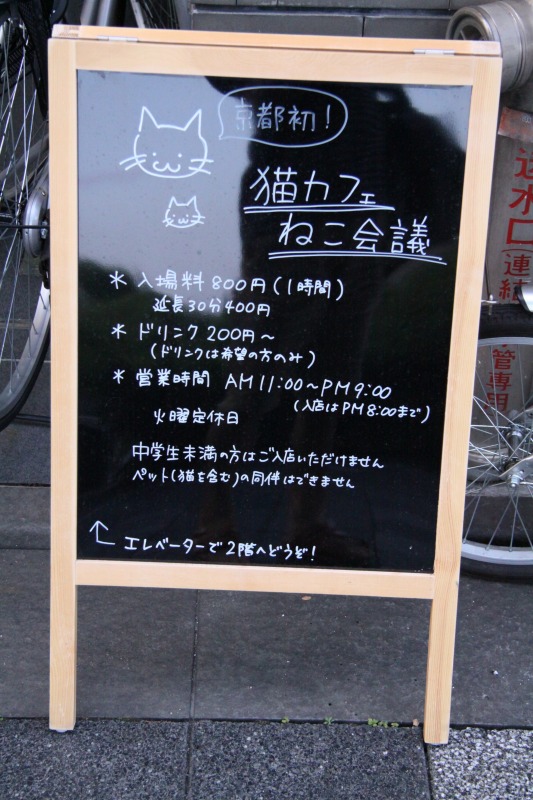 京都初!
猫カフェ
ねこ会議
* 入場料 800円(1時間)
延長30分400円
* ドリンク 200円~
(ドリンクは希望の方のみ)
* 営業時間 AM11:00~PM9:00
(入店はPM8:00まで)
火曜定休日
中学生未満の方はご入店いただけません
ペット(猫を含む)の同伴はできません
エレベーターで2階へどうぞ!
送水口
(連結
管専用